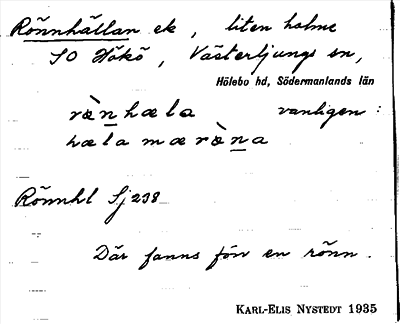 Rönnhällan ek, liten holme
SO Hökö, Västerljungs sn,
Hölebo hd, Södermanlands län
ræ̀nhæla vanligen:
hæla mæ ræ̀na
Rönnhl Sj 238
Där fanns förr en rönn.
KARL-ELIS NYSTEDT 1935